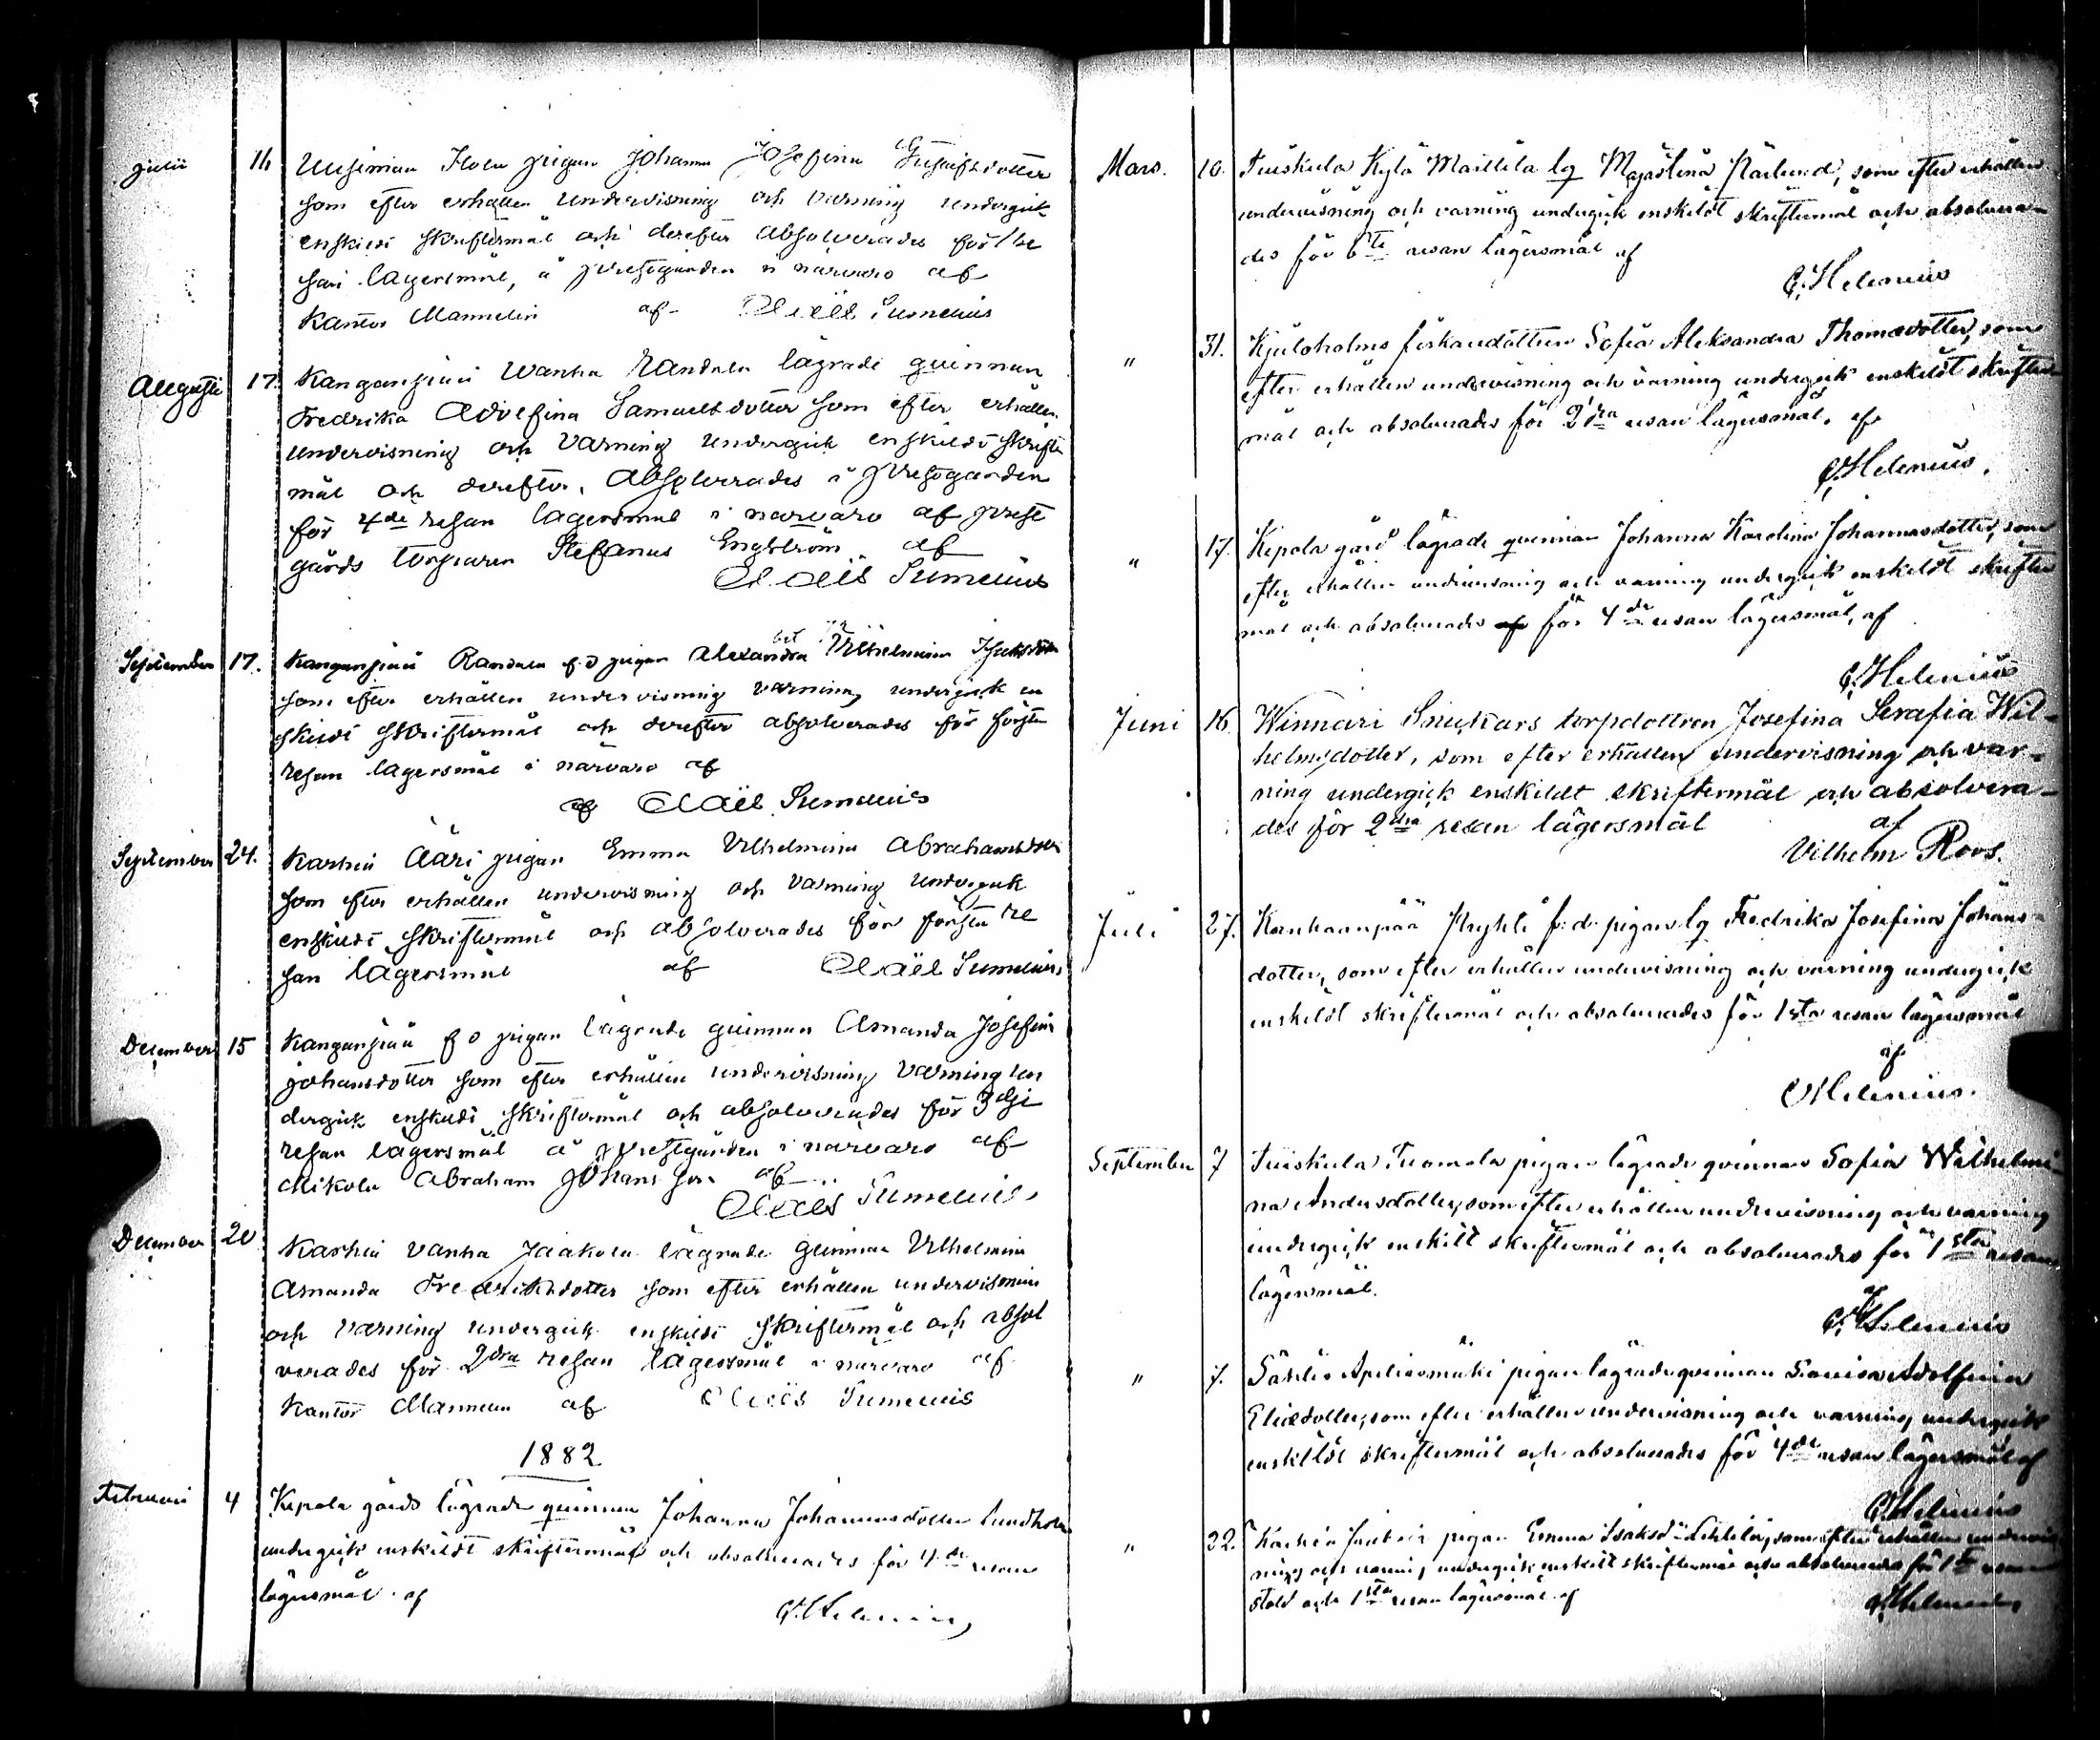 Julii 16 Uusimaa Ilola pigan Johanna Josefina Gustafsdotter
som efter erhållen undervisning och varning undergick
enskildt skriftermål och derefter absolverades för 1 re
san lägersmål, å prestgården i närvaro af
Kantor Mannelin af Claës Sumelius
Augusti 17. Kanganpää Wanha Randala lägrade quinnan
Fredrika Adolfina Samuelsdotter som efter erhållen
undervisning och varning undergick enskildt skrifter
mål och derefter absolverades å prestgården
för 4de resan lägersmål i närvaro af prest
gårds torparen Stefanus Engström af
Claës Sumelius
September 17. Kanganpää Randala f d pigan Alexandra Vilhelmina
som efter erhållen undervisning varning undergick en
skildt skriftermål och derefter absolverades för första
resan lägersmål i närvaro af
af Claës Sumelius
September 24. Karhia Ääri pigan Emma Vilhelmina Abrahamsdotter
som efter erhållen undervisning och varning undergick
enskildt skriftermål och absolverades för första re
san lägersmål af Claës Sumelius
December 15 Kanganpää f d pigan lägrade quinnan Amanda Josefina
Johansdotter som efter erhållen undervisning varning un
dergick enskildt skriftermål och absolverades för 3dje
resan lägersmål å prestgården i närvaro af
Mikola Abraham Johansson af
Claës Sumelius
December 20 Karhia Vanha Jaakola lägrade quinnan Vilhelmina
Amanda Fredriksdotter som efter erhållen undervisning
och varning undergick enskildt skriftermål och absol
verades för 2dra resan lägersmål i närvaro af
Kantor Mannelin af Claës Sumelius
1882
Februari 4 Kepola gårds lägrade quinnan Johanna Johannesdotter Lundholm
undergick enskildt skriftermål och absolverades för 4de resan
lägersmål af
C. Helenius
Mars. 10. Tuiskula Kylä Marttila lq Majastina Närlund, som efter erhållen
undervisning och varning undergick enskildt skriftermål och absolvera-
des för 6te resan lägersmål af
C. Helenius
" 31. Kjuloholms fiskaredottren Sofia Aleksandra Thomasdotter, som
efter erhållen undervisning och varning undergick enskildt skrifter-
mål och absolverades för 2dra resan lägersmål. af
C. Helenius.
" 17. Kepola gård lägrade qvinnan Johanna Karolina Johannesdotter, som
efter erhållen undervisning och varning undergick enskildt skrifter
mål och absolverades af för 4de resan lägersmål, af
C. Helenius
Juni 16. Winnari Sniukars torpdottren Josefina Serafia Wil-
helmsdotter, som efter erhållen undervisning och var-
ning undergick enskildt skriftermål och absolvera-
des för 2dra resan lägersmål af
Vilhelm Roos.
Juli 27. Kanhaanpää Pryhti f:d. pigan lq Fredrika Josefina Johans-
dotter, som efter erhållen undervisning och varning undergick
enskildt skriftermål och absolverades för 1sta resan lägersmål
af
C. Helenius.
September 7 Tuiskula Tuomola pigan lägrade qvinnan Sofia Wilhelmi-
na Andersdotter, som efter erhållen undervisning och varning
undergick enskilt skriftermål och absolverades för 1sta resan
lägersmål.
af
C. Helenius
" 7. Säkylä pigan lägrade qvinnan Lovisa Adolfina
Eliedotter, som efter erhållen undervisning och varning undergick
enskildt skriftermål och absolverades för 4de resan lägersmål af
C. Helenius
" 22. Karhia pigan Emma Isaksd:r som efter erhållen undervis
ning och varning undergick enskilt skriftermål och absolverades för 1sta resan
stöld och 1sta resan lägersmål af
C. Helenius